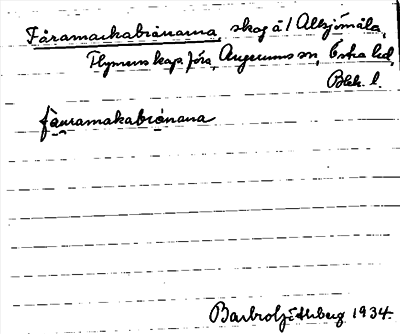 Fåramarkabrånarna, skog å/ Allsjömåla,
Flymens kap. förs, Augerums sn, Östra hd,
Blek. l.
fåuramakabrånana
Barbro Söderberg 1934.